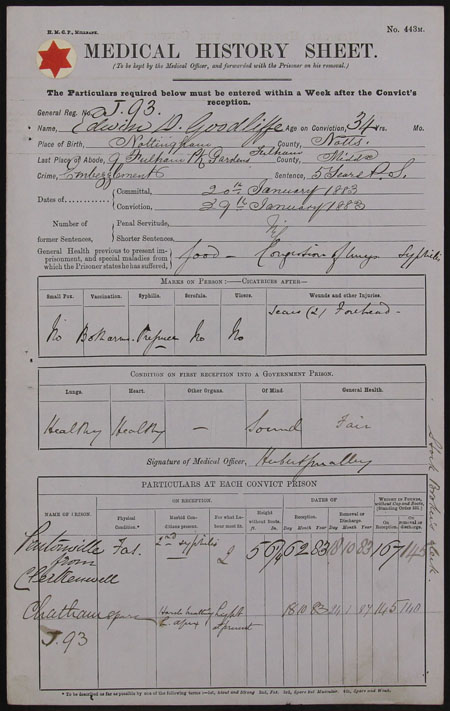 H. M. G. P., MILLBANK.
No. 443M.
MEDICAL HISTORY SHEET.
(To be kept by the Medical Officer, and forwarded with the Prisoner on his removal.)
The Particulars required below must be entered within a Week after the Convict's
reception.
General Reg. No. J. 93.
Name, Edwin D. Goodliffe Age on Conviction, 34 Yrs. Mo.
Place of Birth, Nottingham County, Notts.
Last Place of Abode, 9 Fulham Pk Gardens Fulham County, Middx
Crime, Embezzlement Sentence, 5 Years P. S.
Dates of Committal, 20th January 1883
Conviction, 29th January 1883
Number of former Sentences, Penal Servitude, Nil
Shorter Sentences,
General Health previous to present imprisonment, and special maladies from which the Prisoner states he has suffered, Good — Congestion of lungs Syphilis
MARKS ON PERSON:—CICATRICES AFTER—
Small Pox. Vaccination. Syphilis. Scrofula. Ulcers. Wounds and other Injuries.
No Both arms Prepuce No No Scars (2) Forehead -
CONDITION ON FIRST RECEPTION INTO A GOVERNMENT PRISON.
Lungs. Heart. Other Organs. Of Mind. General Health.
Healthy Healthy — Sound Fair
Signature of Medical Officer, Herbert Smalley
PARTICULARS AT EACH CONVICT PRISON
NAME OF PRISON. ON RECEPTION. DATES OF WEIGHT IN POUNDS,
Physical Condition.* Morbid Conditions present. For what Labour most fit. Height without Boots. Ft. In. Reception. Day Month Year Removal or Discharge. Day Month Year On Reception. On Removal or Discharge.
Pentonville Fat. 2nd syphilis 2 5 6 6 2 83 18 10 83 167 145
from
Clerkenwell
Chatham spare Harsh breathing L. apex Light at present 18 10 83 1 87 145 140
J. 93
* To be described as far as possible by one of the following terms:—1st, Stout and Strong 2nd, Fat. 3rd, Spare but Muscular. 4th, Spare and Weak.